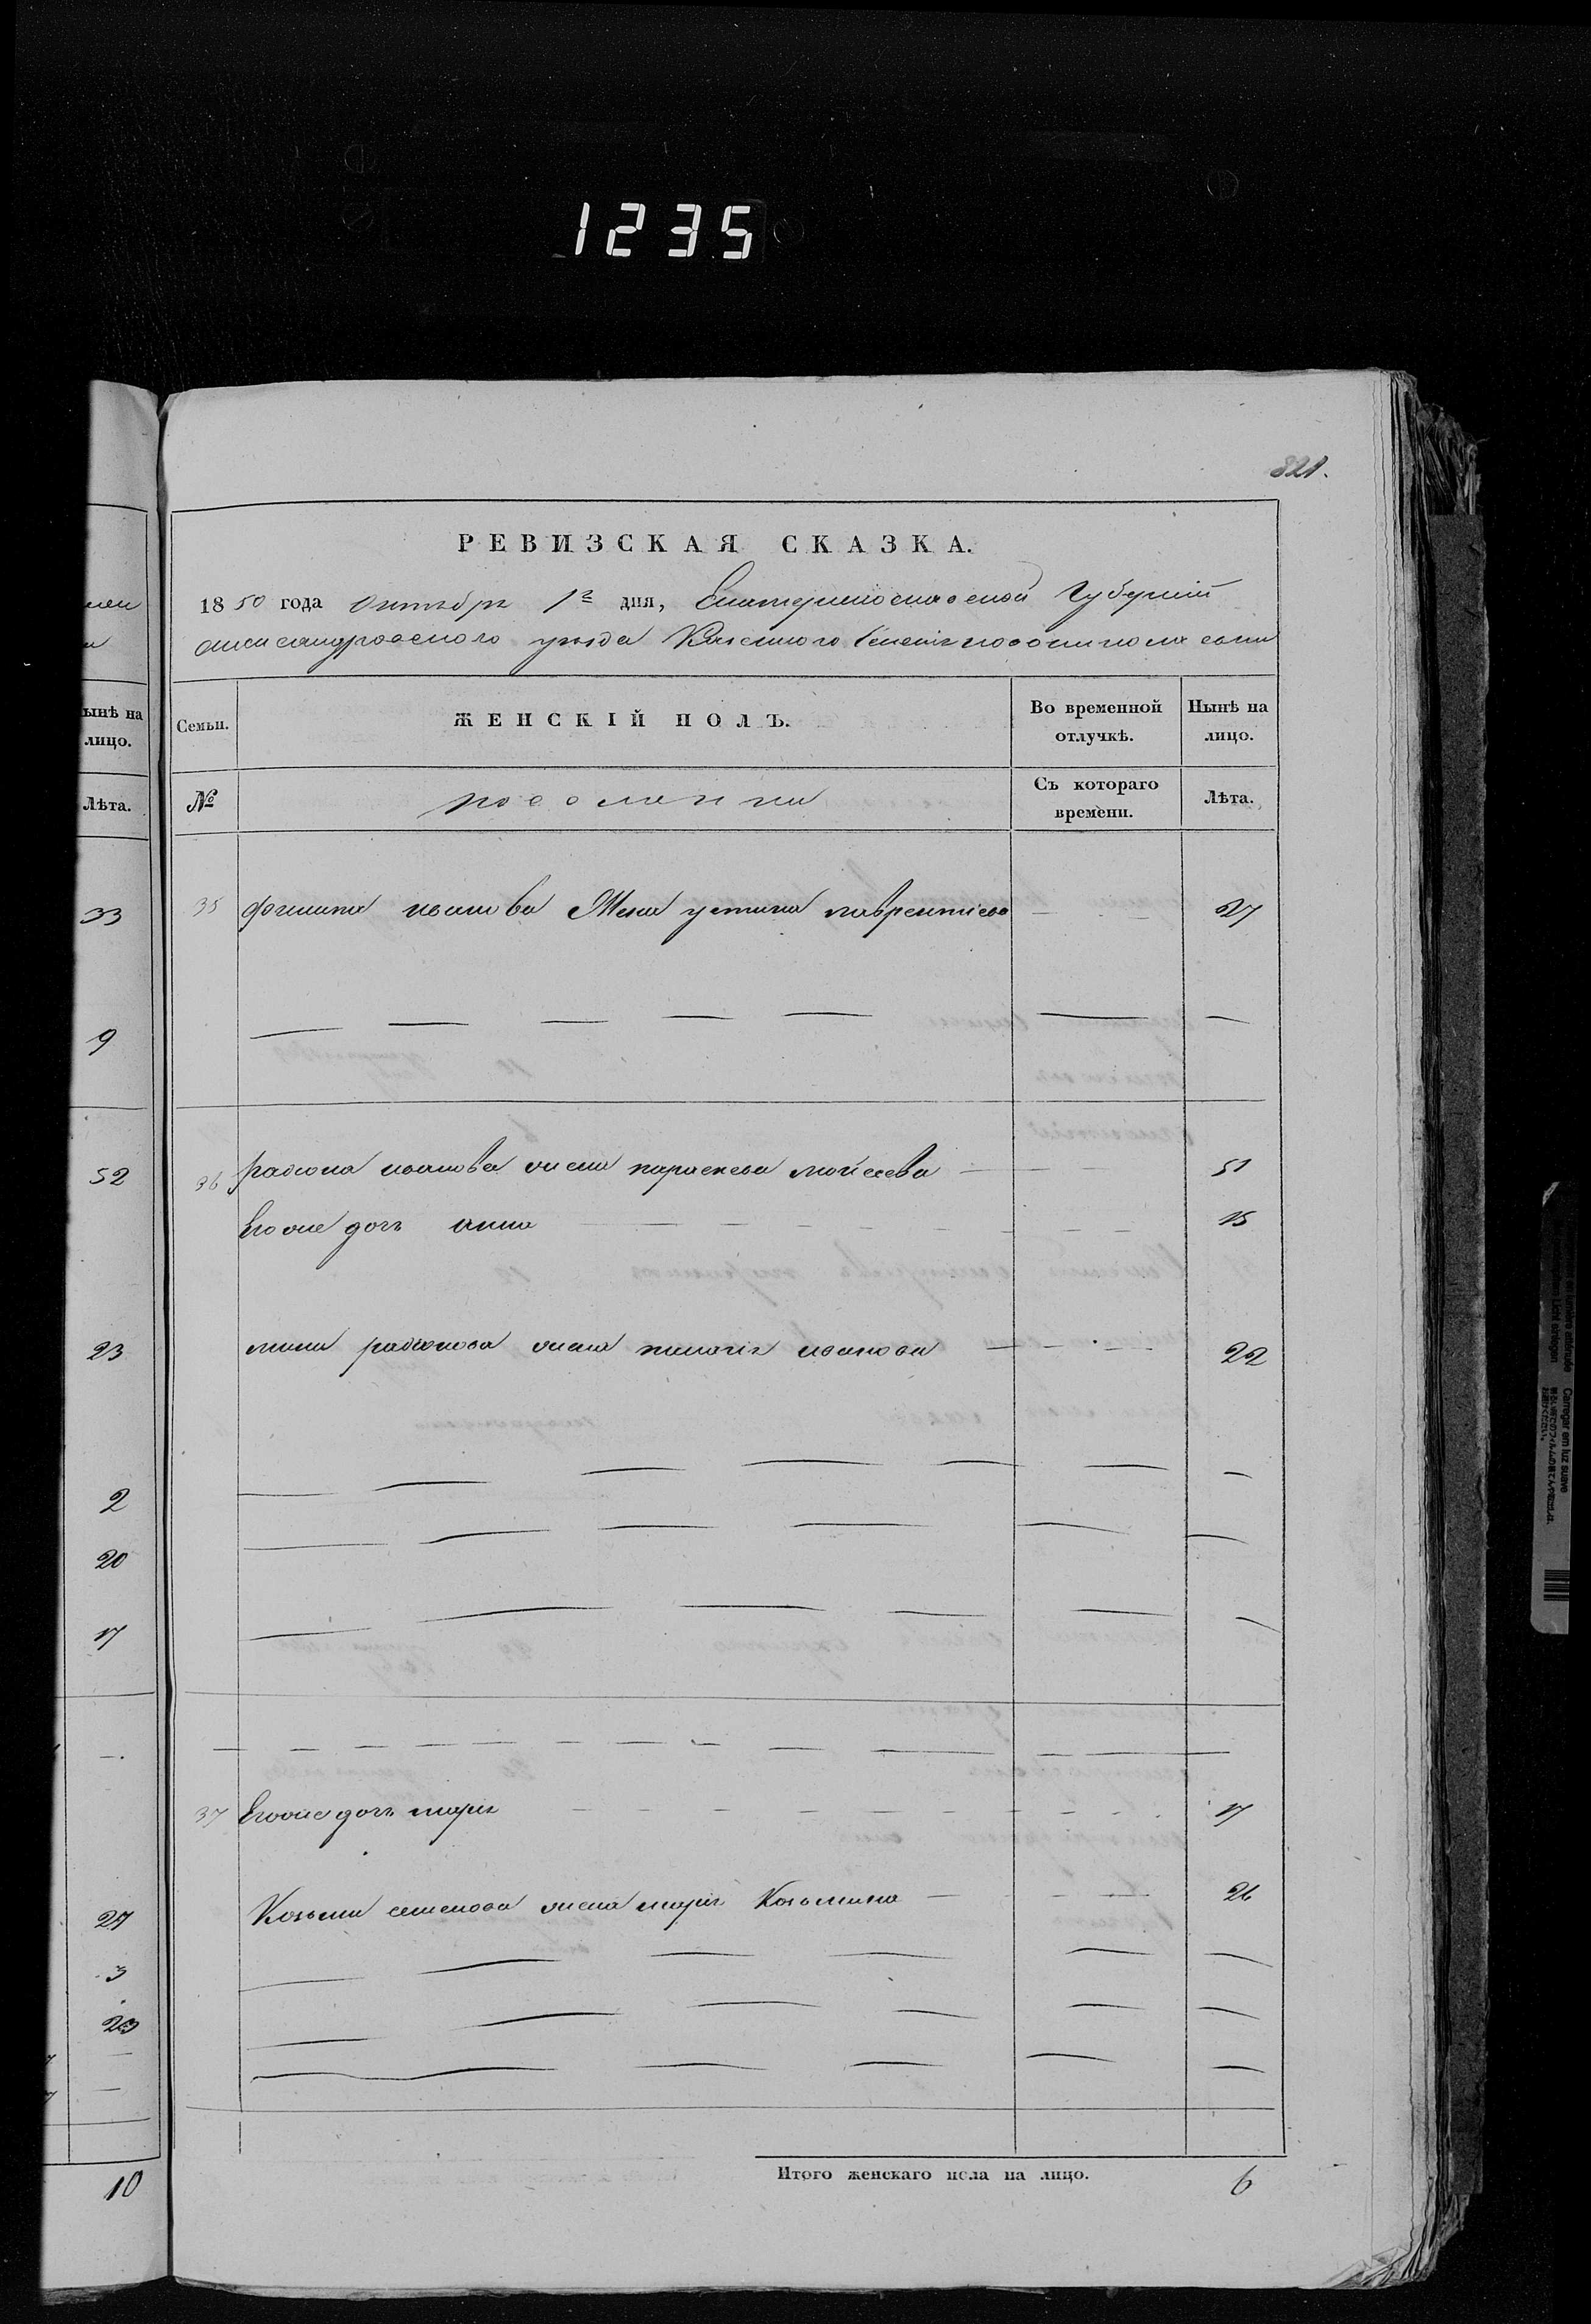 1235
821.
РЕВИЗСКАЯ СКАЗКА.
1850 года октября 1го дня, Екатеринославской Губернии
александровского уезда Казенного селения новониколаевки
ынѣ на лицо.
Лѣта.
Семьи.
ЖЕНСКІЙ ПОЛЪ.
Во временной отлучкѣ.
Нынѣ на лицо.
№
Съ котораго времени.
Лѣта.
33
35 ивамова Жена устина лаврентиева — 27
9
52
36 радиона иванова жена параскева мойсеева — 51
Его же дочь анна — 15
23
радионова жена пелагия иванова — 22
2
20
17
—
37 Его же дочь мария — 17
27
Козьмы семенова жена мария Козьмина — 26
3
23
10
Итого женскаго пола на лицо. 6